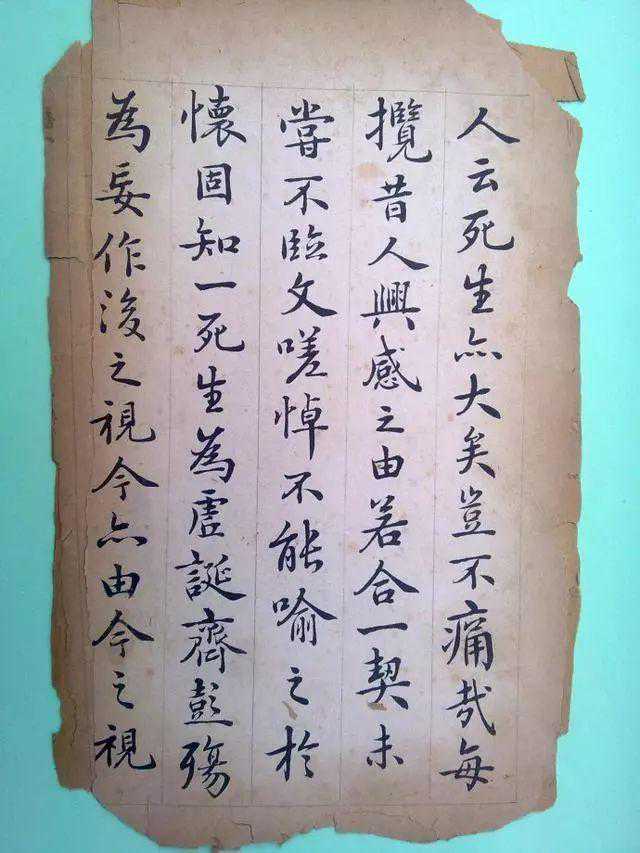 人云死生亦大矣豈不痛哉每
攬昔人興感之由若合一契未
嘗不臨文嗟悼不能喻之於
懷固知一死生為虛誕齊彭殤
為妄作後之視今亦由今之視